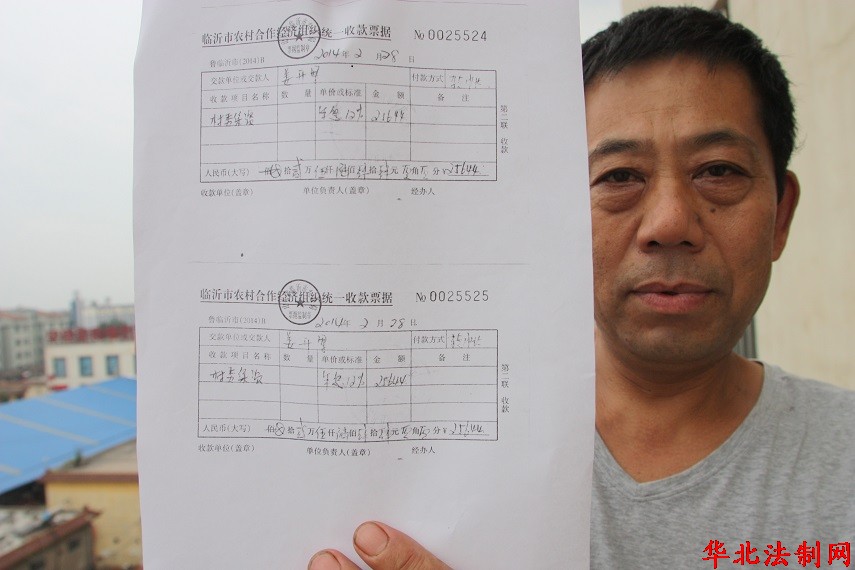 临沂市农村合作经济组织统一收款票据 No 0025524
鲁临沂市(2014)B 2014年2月28日
交款单位或交款人 付款方式
收款项目名称 数量 单价或标准 金额 备注
村委集资 年息12% 25644
第二联 收款
人民币(大写) 拾贰万伍仟陆佰 拾 元 角 分 ¥25644
收款单位(盖章) 单位负责人(盖章) 经办人
临沂市农村合作经济组织统一收款票据 No 0025525
鲁临沂市(2014)B 2014年2月28日
交款单位或交款人 付款方式
收款项目名称 数量 单价或标准 金额 备注
村委集资 年息12% 25644
第二联 收款
人民币(大写) 佰 拾贰万伍仟陆佰 拾 元 角 分 ¥25644
收款单位(盖章) 单位负责人(盖章) 经办人
华北法制网